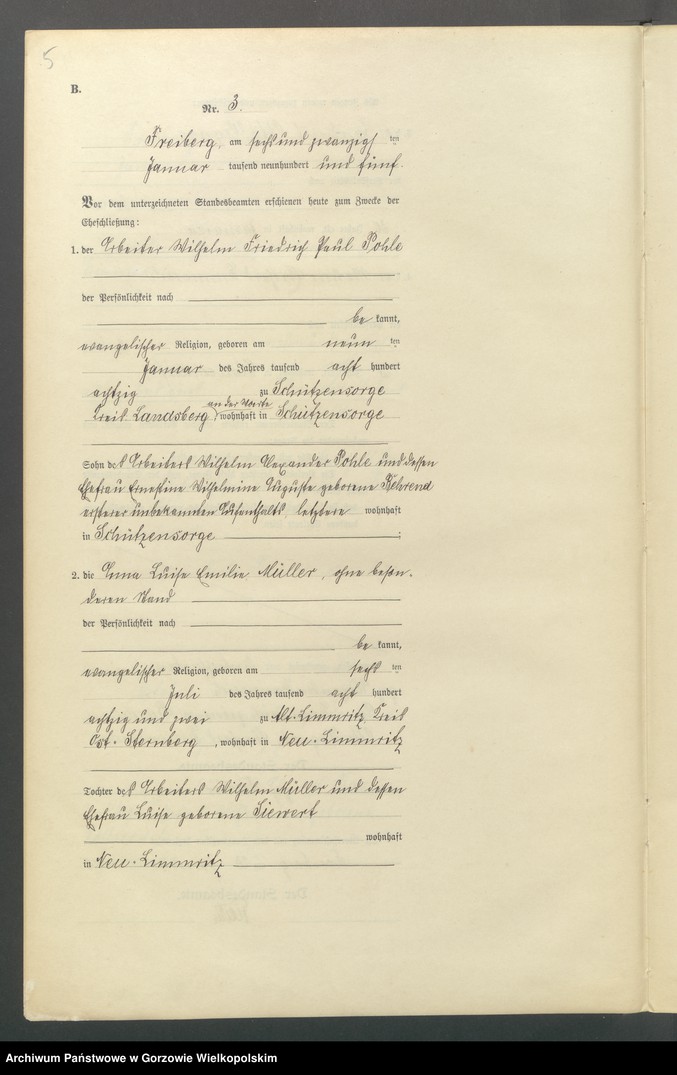 5
B.
Nr. 3.
Freiberg, am sechsundzwanzigs ten
Januar tausend neunhundert und fünf.
Vor dem unterzeichneten Standesbeamten erschienen heute zum Zwecke der
Eheschließung:
1. der Arbeiter Wilhelm Friedrich Paul Pohle
der Persönlichkeit nach
be kannt,
evangelischer Religion, geboren am neun ten
Januar des Jahres tausend acht hundert
achtzig zu Schützensorge
an der Warte
Kreis Landsberg, wohnhaft in Schützensorge
Sohn des Arbeiters Wilhelm Alexander Pohle und dessen
Ehefrau Ernestine Wilhelmine Auguste geborene Behrend
ersterer unbekannten Aufenthalts letztere wohnhaft
in Schützensorge ;
2. die Anna Luise Emilie Müller, ohne beson-
deren Stand
der Persönlichkeit nach
be kannt,
evangelischer Religion, geboren am sechs ten
Juli des Jahres tausend acht hundert
achtzig und zwei zu Alt-Limmritz, Kreis
Ost-Sternberg, wohnhaft in Neu-Limmritz
Tochter des Arbeiters Wilhelm Müller und dessen
Ehefrau Luise geborene Siewert
wohnhaft
in Neu-Limmritz
Archiwum Państwowe w Gorzowie Wielkopolskim